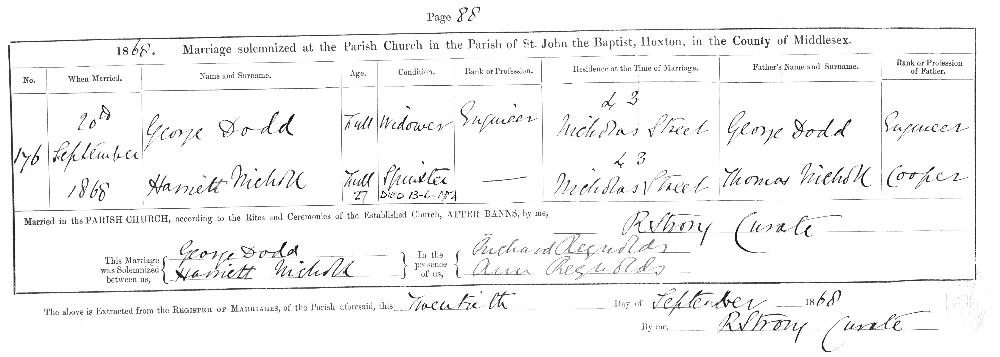 Page 88
1868. Marriage solemnized at the Parish Church in the Parish of St. John the Baptist, Hoxton, in the County of Middlesex.
No. When Married. Name and Surname. Age. Condition. Rank or Profession. Residence at the Time of Marriage. Father's Name and Surname. Rank or Profession of Father.
176 20th September 1868
George Dodd Full Widower Engineer 43 Nicholas Street George Dodd Engineer
Harriett Nicholl Full 27 Spinster — 43 Nicholas Street Thomas Nicholl Cooper
DIED 13-6-
Married in the PARISH CHURCH, according to the Rites and Ceremonies of the Established Church, AFTER BANNS, by me,
R Strong Curate
This Marriage was Solemnized between us, { George Dodd
Harriett Nicholl } In the presence of us, { Richard Reynolds
Ann Reynolds
The above is Extracted from the REGISTER OF MARRIAGES, of the Parish aforesaid, this Twentieth Day of September 1868
By me, R Strong Curate